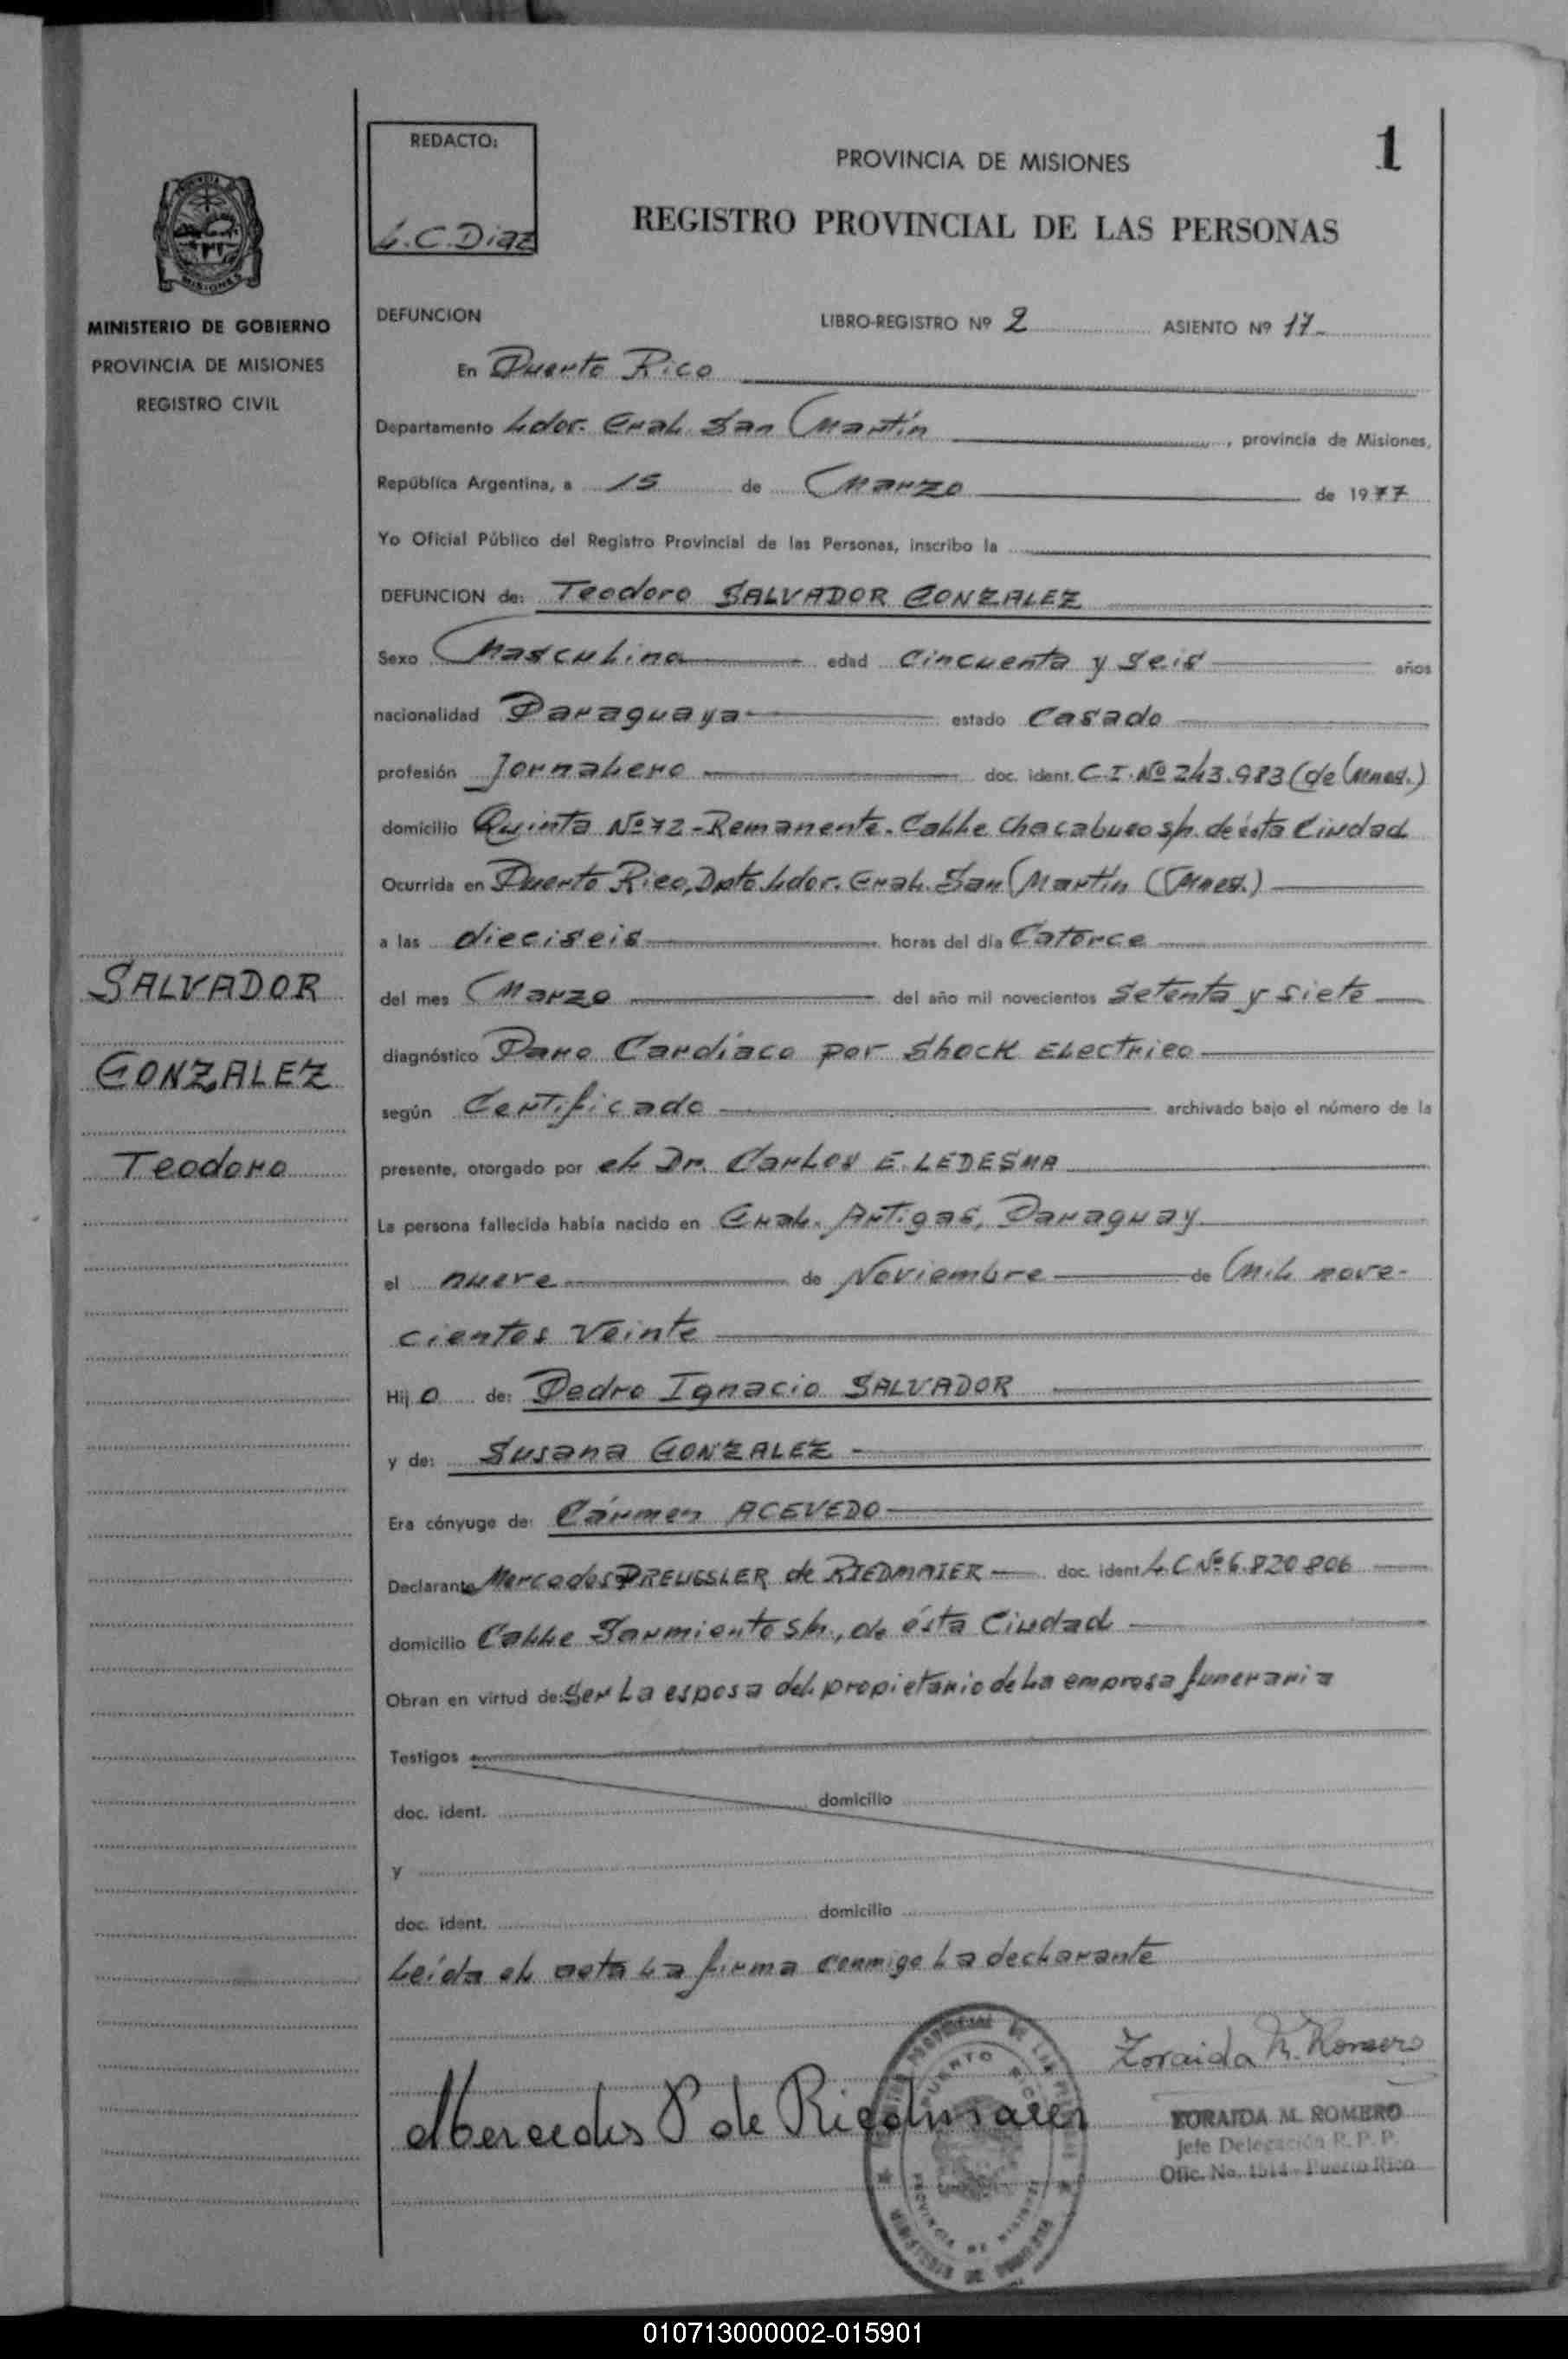 REDACTO:
L.C. Diaz
PROVINCIA DE MISIONES
1
REGISTRO PROVINCIAL DE LAS PERSONAS
MINISTERIO DE GOBIERNO
PROVINCIA DE MISIONES
REGISTRO CIVIL
SALVADOR
GONZALEZ
Teodoro
DEFUNCION LIBRO-REGISTRO Nº 2 ASIENTO Nº 17
En Puerto Rico
Departamento Ldor. Gral. San Martín, provincia de Misiones,
República Argentina, a 15 de Marzo de 1977
Yo Oficial Público del Registro Provincial de las Personas, inscribo la
DEFUNCION de: Teodoro SALVADOR GONZALEZ
Sexo Masculino edad Cincuenta y Seis años
nacionalidad Paraguaya estado Casado
profesión Jornalero doc. ident. C.I. Nº 243.983 (de Mnes.)
domicilio Quinta Nº 72 - Remanente. Calle Chacabuco s/n. de ésta Ciudad
Ocurrida en Puerto Rico, Dpto. Ldor. Gral. San Martín (Mnes.)
a las dieciseis horas del día Catorce
del mes Marzo del año mil novecientos Setenta y siete
diagnóstico Paro Cardíaco por Shock Electrico
según Certificado archivado bajo el número de la
presente, otorgado por el Dr. Carlos E. LEDESMA
La persona fallecida había nacido en Gral. Artigas, Paraguay
el nueve de Noviembre de Mil nove-
cientos veinte
Hijo de: Pedro Ignacio SALVADOR
y de: Susana GONZALEZ
Era cónyuge de: Cármen ACEVEDO
Declarante Mercedes PREUSSLER de RIEDMAIER doc. ident L.C Nº 6.820.806
domicilio Calle Sarmiento s/n, de ésta Ciudad
Obran en virtud de: Ser la esposa del propietario de la empresa funeraria
Testigos
doc. ident. domicilio
y
doc. ident. domicilio
Leída el acta la firma conmigo la declarante
Zoraida M. Romero
Mercedes P de Riedmaier
PUERTO RICO
ZORAIDA M. ROMERO
Jefe Delegación R. P. P.
Ofic. No. 1514 - Puerto Rico
010713000002-015901